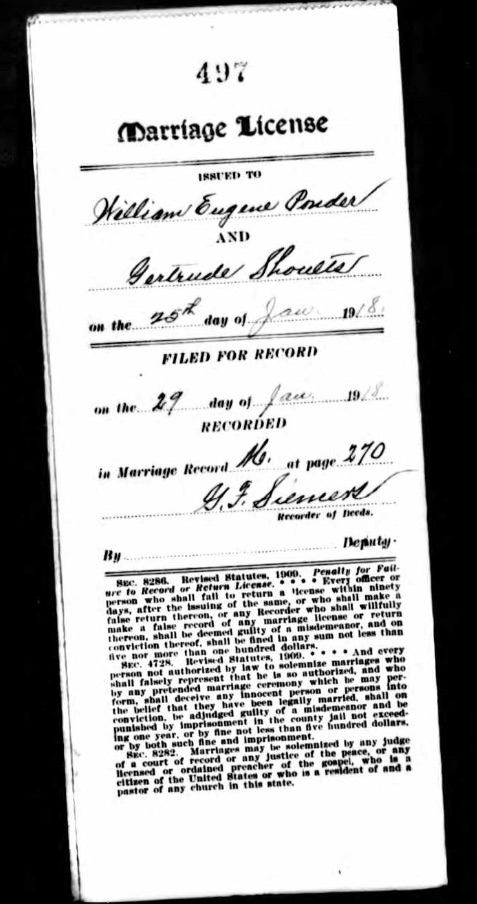 497
Marriage License
ISSUED TO
William Eugene Ponder
AND
Gertrude Shoults
on the 25th day of Jan. 1918.
FILED FOR RECORD
on the 29 day of Jan. 1918
RECORDED
in Marriage Record M. at page 270
G. F. Siemers
Recorder of Deeds.
By Deputy.
SEC. 8286. Revised Statutes, 1909. Penalty for Fail-
ure to Record or Return License. * * * * Every officer or
person who shall fail to return a license within ninety
days, after the issuing of the same, or who shall make a
false return thereon, or any Recorder who shall willfully
make a false record of any marriage license or return
thereon, shall be deemed guilty of a misdemeanor, and on
conviction thereof, shall be fined in any sum not less than
five nor more than one hundred dollars.
SEC. 4728. Revised Statutes, 1909. * * * * And every
person not authorized by law to solemnize marriages who
shall falsely represent that he is so authorized, and who
by any pretended marriage ceremony which he may per-
form, shall deceive any innocent person or persons into
the belief that they have been legally married, shall on
conviction, be adjudged guilty of a misdemeanor and be
punished by imprisonment in the county jail not exceed-
ing one year, or by fine not less than five hundred dollars,
or by both such fine and imprisonment.
SEC. 8282. Marriages may be solemnized by any judge
of a court of record or any justice of the peace, or any
licensed or ordained preacher of the gospel, who is a
citizen of the United States or who is a resident of and a
pastor of any church in this state.